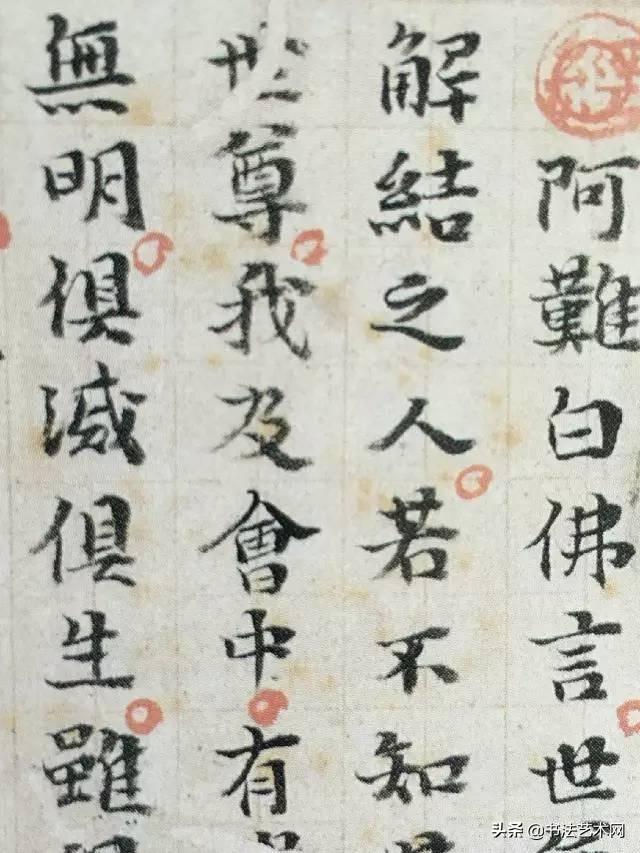 阿難白佛言世
解結之人若不知
世尊我及會中有
無明俱滅俱生雖
头条 @书法艺术网